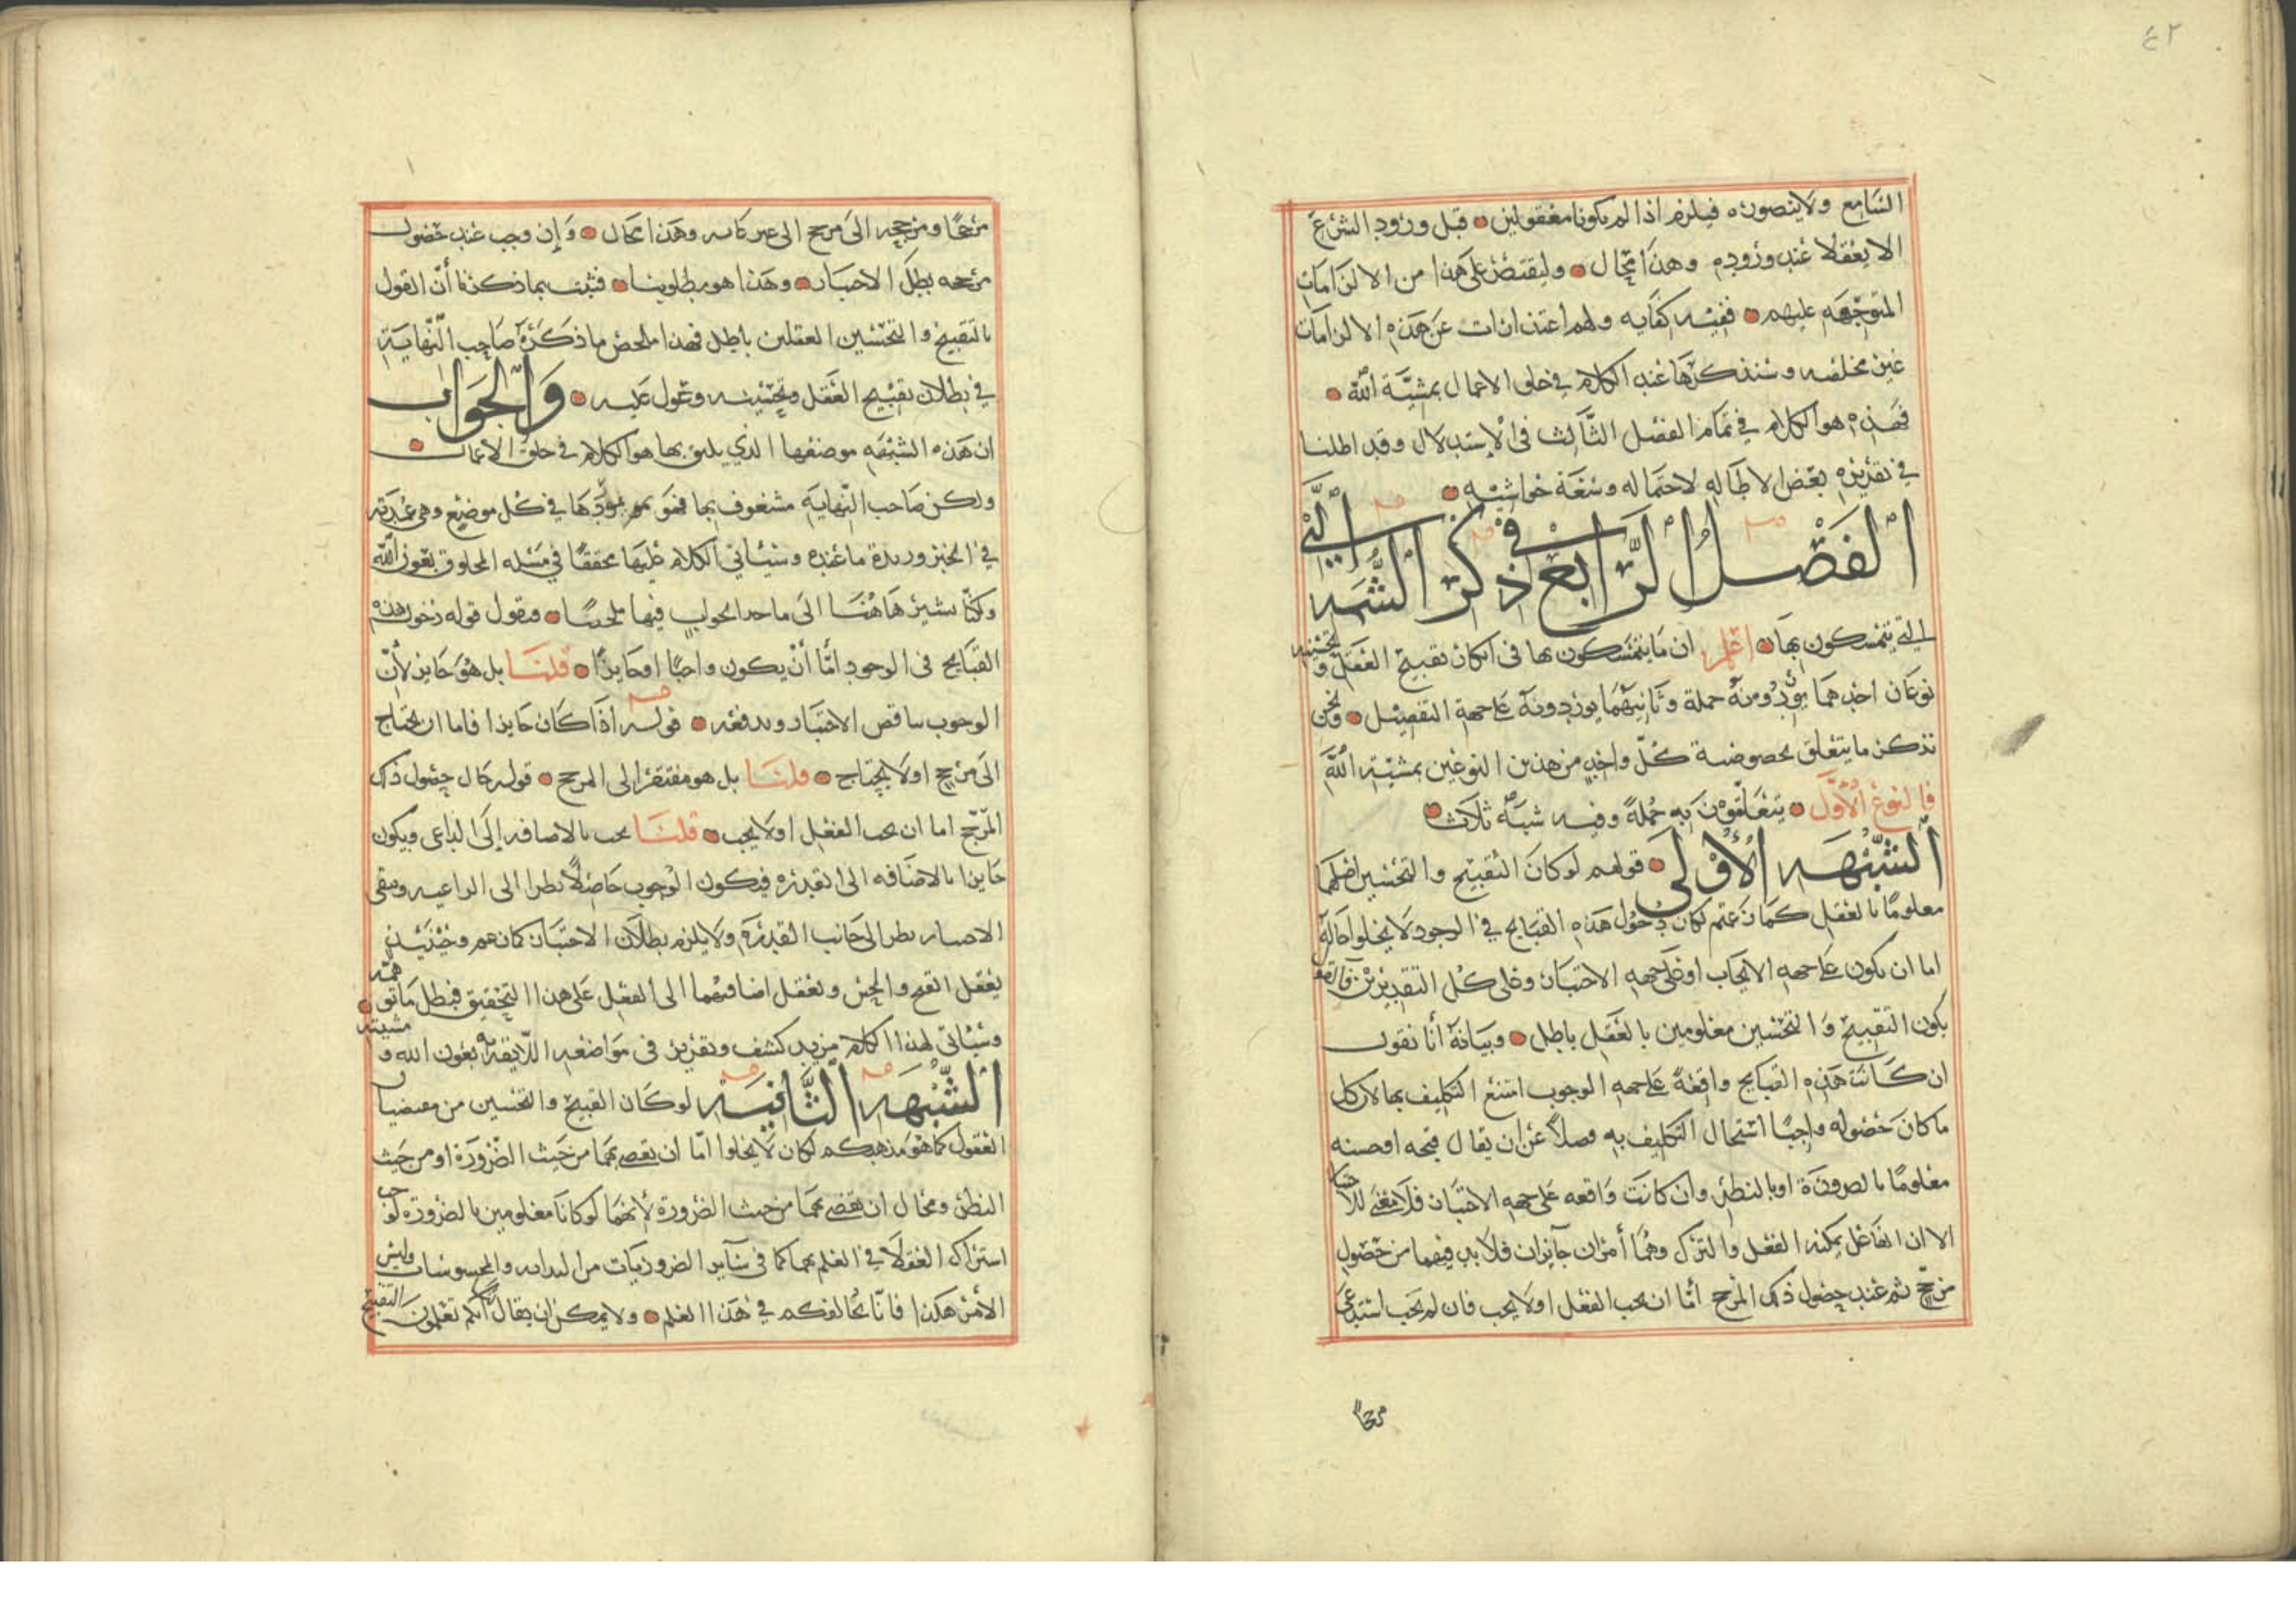 ٤٢
السامع ولا يتصوره فيلزم اذا لم يكونا معقولين قبل ورود الشرع
الا يعقلا عند وروده وهذا محال وليقتصر على هذا من الالزامات
المتوجهه عليهم ففيه كفايه ولهم اعتذارات عن هذه الالزامات
غير مخلصه وسنذكرها عند الكلام في خلق الاعمال بمشيّة الله
فهذه هو الكلام في تمام الفصل الثالث في الاستدلال وقد اطلنا
في تقريره بعض الاطاله لاحتماله وسعة حواشيه
الفصل الرابع في ذكر الشبه التي
التي يتمسكون بها اعلم ان ما يتمسكون بها في انكار تقبيح العقل وتحسينه
نوعان احدهما يوردونه جملة وثانيهما يوردونه على جهة التفصيل ونحن
نذكر ما يتعلق بخصوصية كل واحد من هذين النوعين بمشيّة الله
فالنوع الاول يتعلقون به جملة وفيه شبه ثلاث
الشبهه الاولى قولهم لو كان التقبيح والتحسين اصلهما
معلومًا بالعقل كما زعمتم لكان دخول هذه القبايح في الوجود لا يخلوا حاله
اما ان يكون على جهه الايجاب او على جهه الاختيار وعلى كل التقديرين فالقو
بكون التقبيح والتحسين معلومين بالعقل باطل وبيانه أنا نقول
ان كانت هذه القبايح واقعة على جهه الوجوب امتنع التكليف بها لان كل
ما كان حصوله واجبًا استحال التكليف به فضلاً عن ان يقال قبحه او حسنه
معلومًا بالضرورة او بالنظر وان كانت واقعه على جهه الاختيار فلا معنى للاختيار
الا ان الفاعل يمكنه الفعل والترك وهما أمران جايزان فلا بد فيهما من حصول
مرجح ثم عند حصول ذلك المرجح امّا ان يجب الفعل اولا يجب فان لم يجب استدعى
مرجحًا
مرجحًا ومرجحه الى مرجح الى غير غايه وهذا محال وإن وجب عند حصول
مرجحه بطل الاختيار وهذا هو مطلوبنا فثبت بما ذكرنا أن القول
بالتقبيح والتحسين العقلين باطل فهذا ملخص ما ذكره صاحب النهاية
في بطلان تقبيح العقل وتحسينه وعول عليه والجواب
ان هذه الشبهه موضعها الذي يليق بها هو الكلام في خلق الاعمال
ولكن صاحب النهايه مشغوف بها فهو يوردها في كل موضع وهى عمدته
في الجبر وزبدة ما عنده وسيأتي الكلام عليها محققًا في مسئله المخلوق بعون الله
وكنّا نشير هاهنا الى ماخذ الجواب فيها ملخصًا فنقول قوله دخول هذه
القبايح في الوجود امّا أن يكون واجبًا او جايزًا قلنا بل هو جايز لأن
الوجوب يناقض الاختيار ويدفعه قوله اذا كان جايزا فاما ان يحتاج
الى مرجح اولا يحتاج قلنا بل هو مفتقرا الى المرجح قوله حال حصول ذلك
المرجح اما ان يجب الفعل اولا يجب قلنا يجب بالاضافه إلى الداعي ويكون
جايزا بالاضافه الى القدره فيكون الوجوب حاصلاً نظرا الى الداعيه ويبقى
الاختيار نظرا الى جانب القدره ولا يلزم بطلان الاختيار كما زعم وحينئذ
يعقل القبح والحسن ويعقل اضافتهما الى الفعل على هذا التحقيق فبطل ما توهمه
وسيأتي لهذا الكلام مزيد كشف وتقرير في مواضعه اللايقه به بعون الله ومشيته
الشبهه الثانيه لو كان القبيح والتحسين من مقتضيا
العقول كما هو مذهبكم لكان لا يخلوا امّا ان يقضي بهما من حيث الضرورة او من حيث
النظر ومحال ان يقضي بهما من حيث الضرورة لأنهما لو كانا معلومين بالضرورة لوجب
اشتراك العقلا في العلم بهما كما في سآير الضروريات من البدايه والمحسوسات وليس
الأمر هكذا فانّا نخالفكم في هذا العلم ولا يمكن ان يقال انكم تعلمون التقبيح